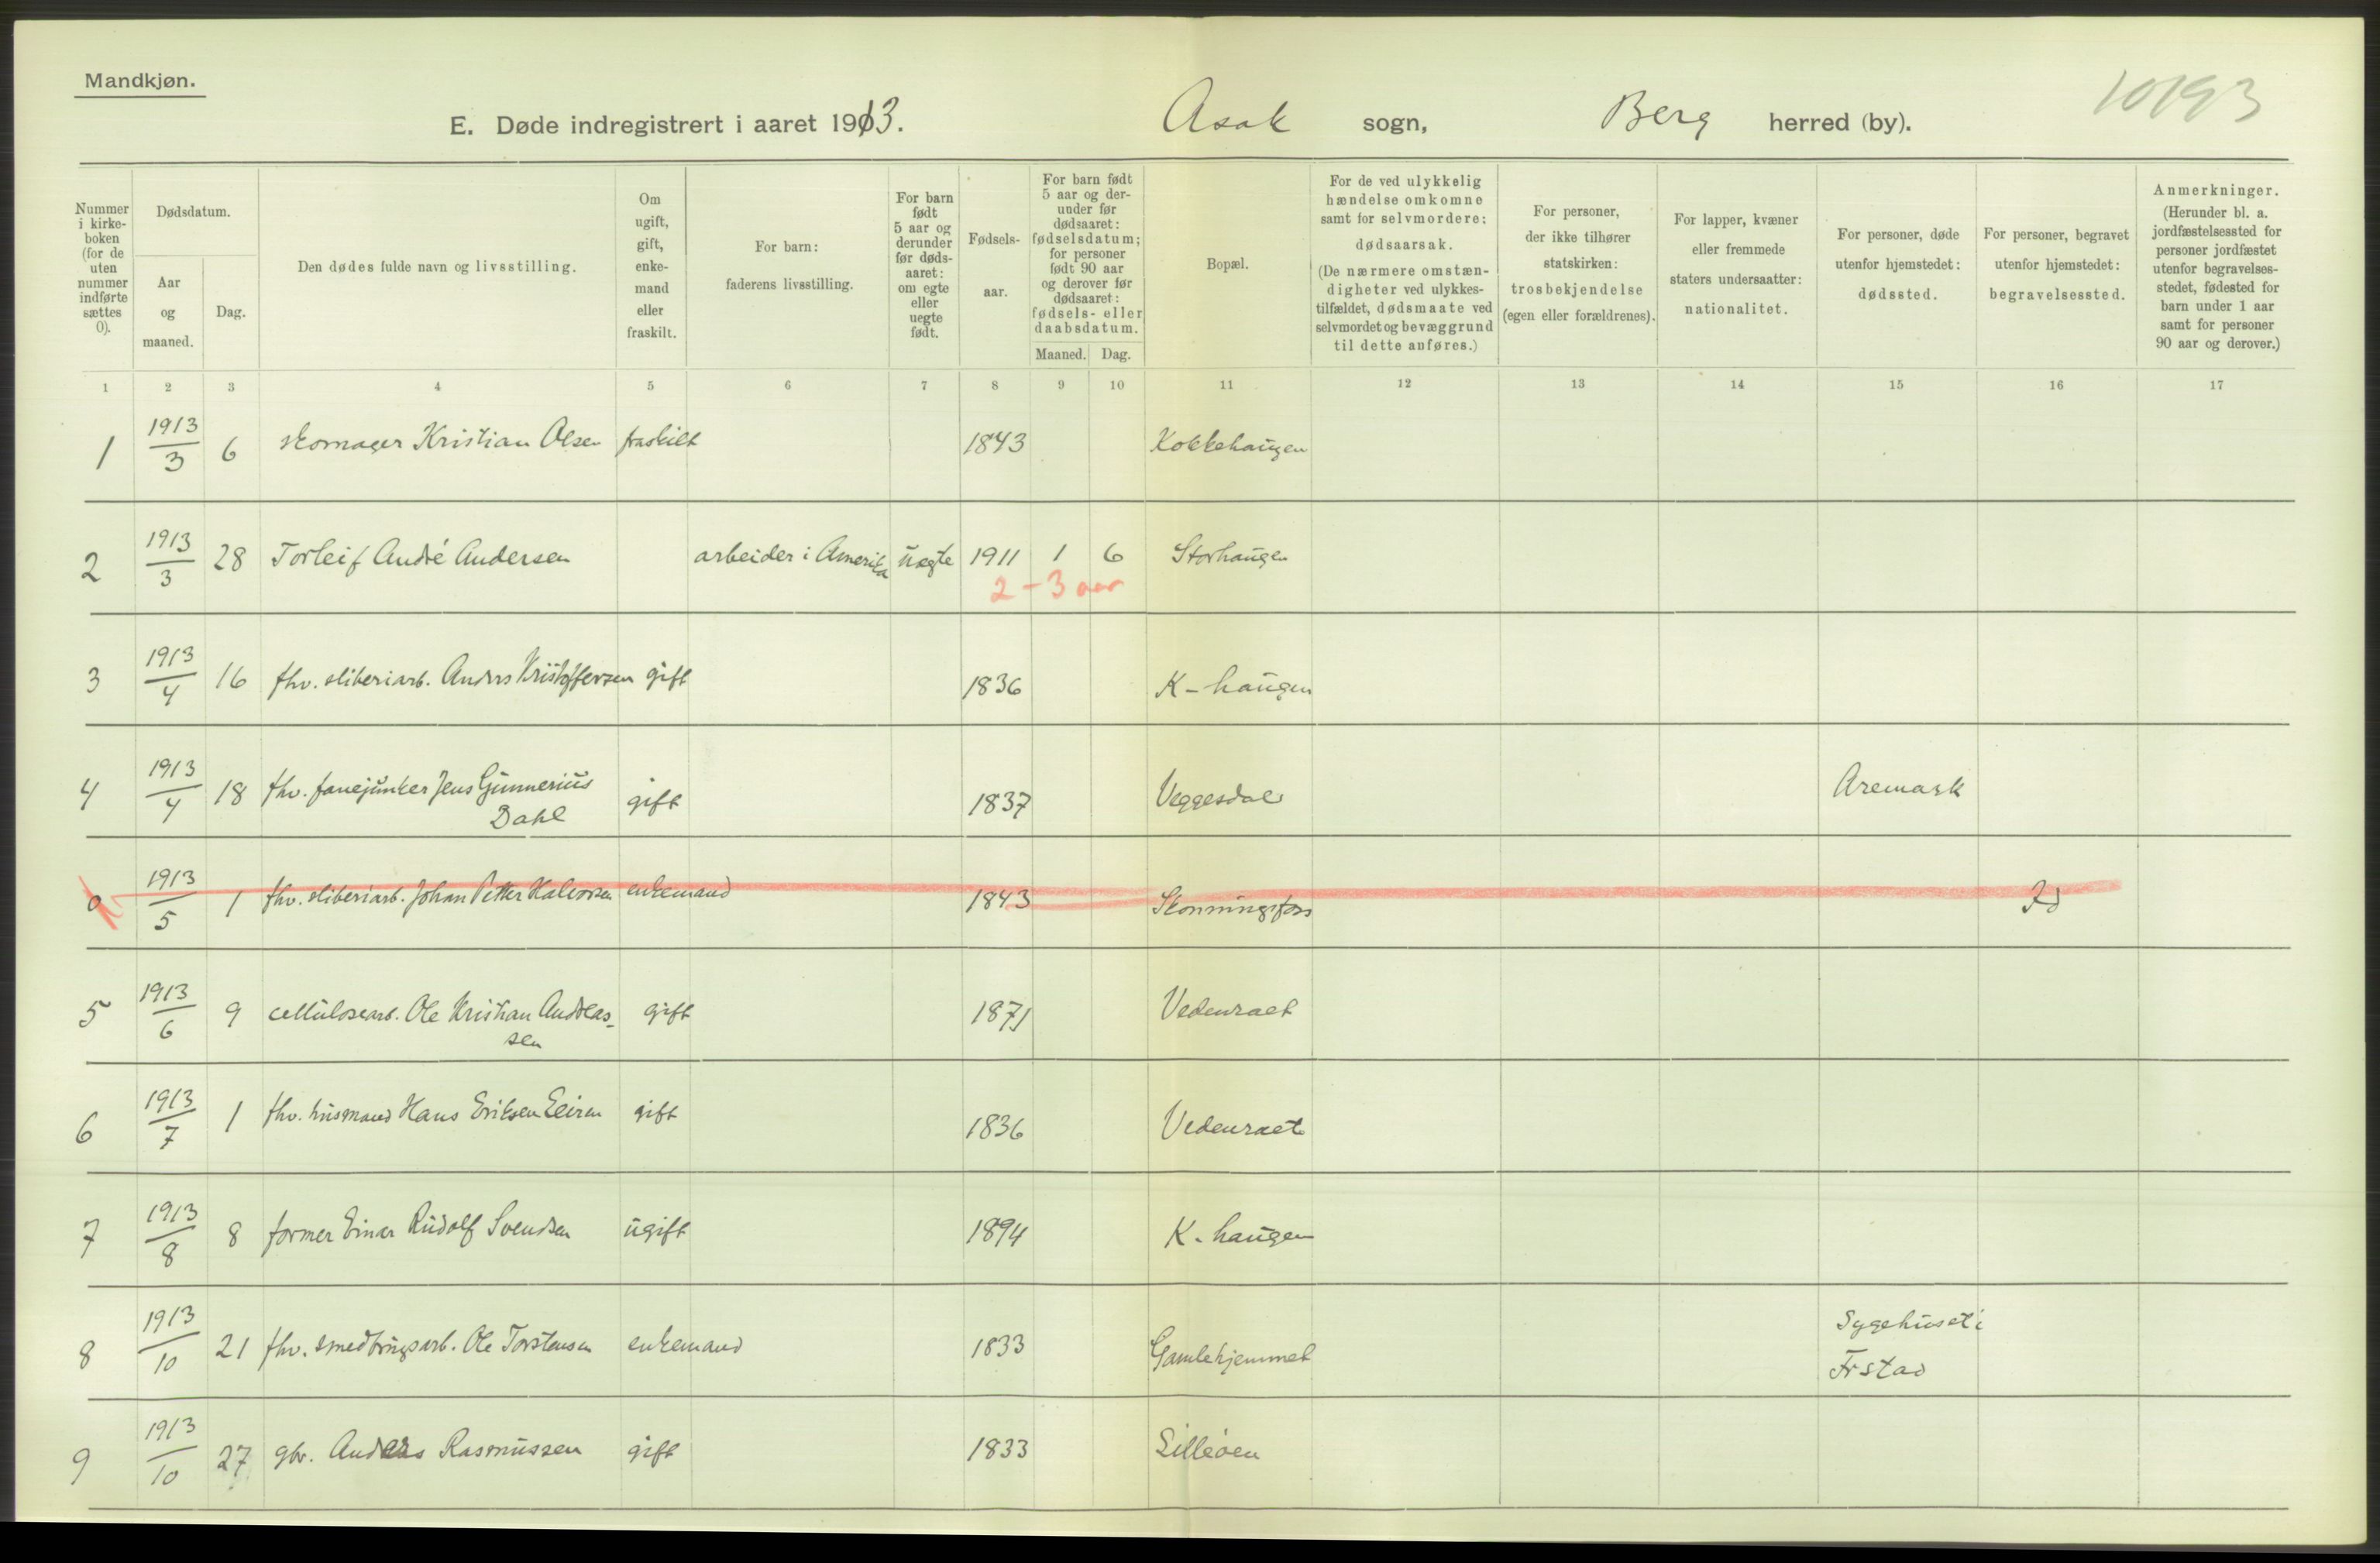 Mandkjøn.
E. Døde indregistrert i aaret 1913. Asak sogn, Berg herred (by). 10193
Nummer i kirkeboken (for de uten nummer indførte sættes 0).
Dødsdatum.
Aar og maaned.
Dag.
Den dødes fulde navn og livsstilling.
Om ugift, gift, enkemand eller fraskilt.
For barn: faderens livsstilling.
For barn født 5 aar og derunder før dødsaaret: om egte eller uegte født.
Fødselsaar.
For barn født 5 aar og derunder før dødsaaret: fødselsdatum; for personer født 90 aar og derover før dødsaaret: fødsels- eller daabsdatum.
Maaned. Dag.
Bopæl.
For de ved ulykkelig hændelse omkomne samt for selvmordere: dødsaarsak. (De nærmere omstændigheter ved ulykkestilfældet, dødsmaate ved selvmordet og bevæggrund til dette anføres.)
For personer, der ikke tilhører statskirken: trosbekjendelse (egen eller forældrenes).
For lapper, kvæner eller fremmede staters undersaatter: nationalitet.
For personer, døde utenfor hjemstedet: dødssted.
For personer, begravet utenfor hjemstedet: begravelsessted.
Anmerkninger. (Herunder bl. a. jordfæstelsessted for personer jordfæstet utenfor begravelsesstedet, fødested for barn under 1 aar samt for personer 90 aar og derover.)
1 2 3 4 5 6 7 8 9 10 11 12 13 14 15 16 17
1 1913/3 6 skomager Kristian Olsen fraskilt 1843 Kokkehaugen
2 1913/3 28 Torleif André Andersen arbeider i Amerika uegte 1911 1 6 Storhaugen
2-3 aar
3 1913/4 16 fhv. sliberiarb. Anders Kristoffersen gift 1836 K-haugen
4 1913/4 18 fhv. fanejunker Jens Gunnerius Dahl gift 1837 Veggesdal Aremark
0 1913/5 1 fhv. sliberiarb. Johan Petter Halvorsen enkemand 1843 Skonningsfoss Id
5 1913/6 9 cellulosearb. Ole Kristian Andreassen gift 1871 Vedenraet
6 1913/7 1 fhv. husmand Hans Eriksen gift 1836 Vedenraet
7 1913/8 8 former Einar Rudolf Svendsen ugift 1894 K-haugen
8 1913/10 21 fhv. Ole Torstensen enkemand 1833 Gamlehjemmet Sygehuset i Frstad
9 1913/10 27 gbr. Anders Rasmussen gift 1833 Lilleøen